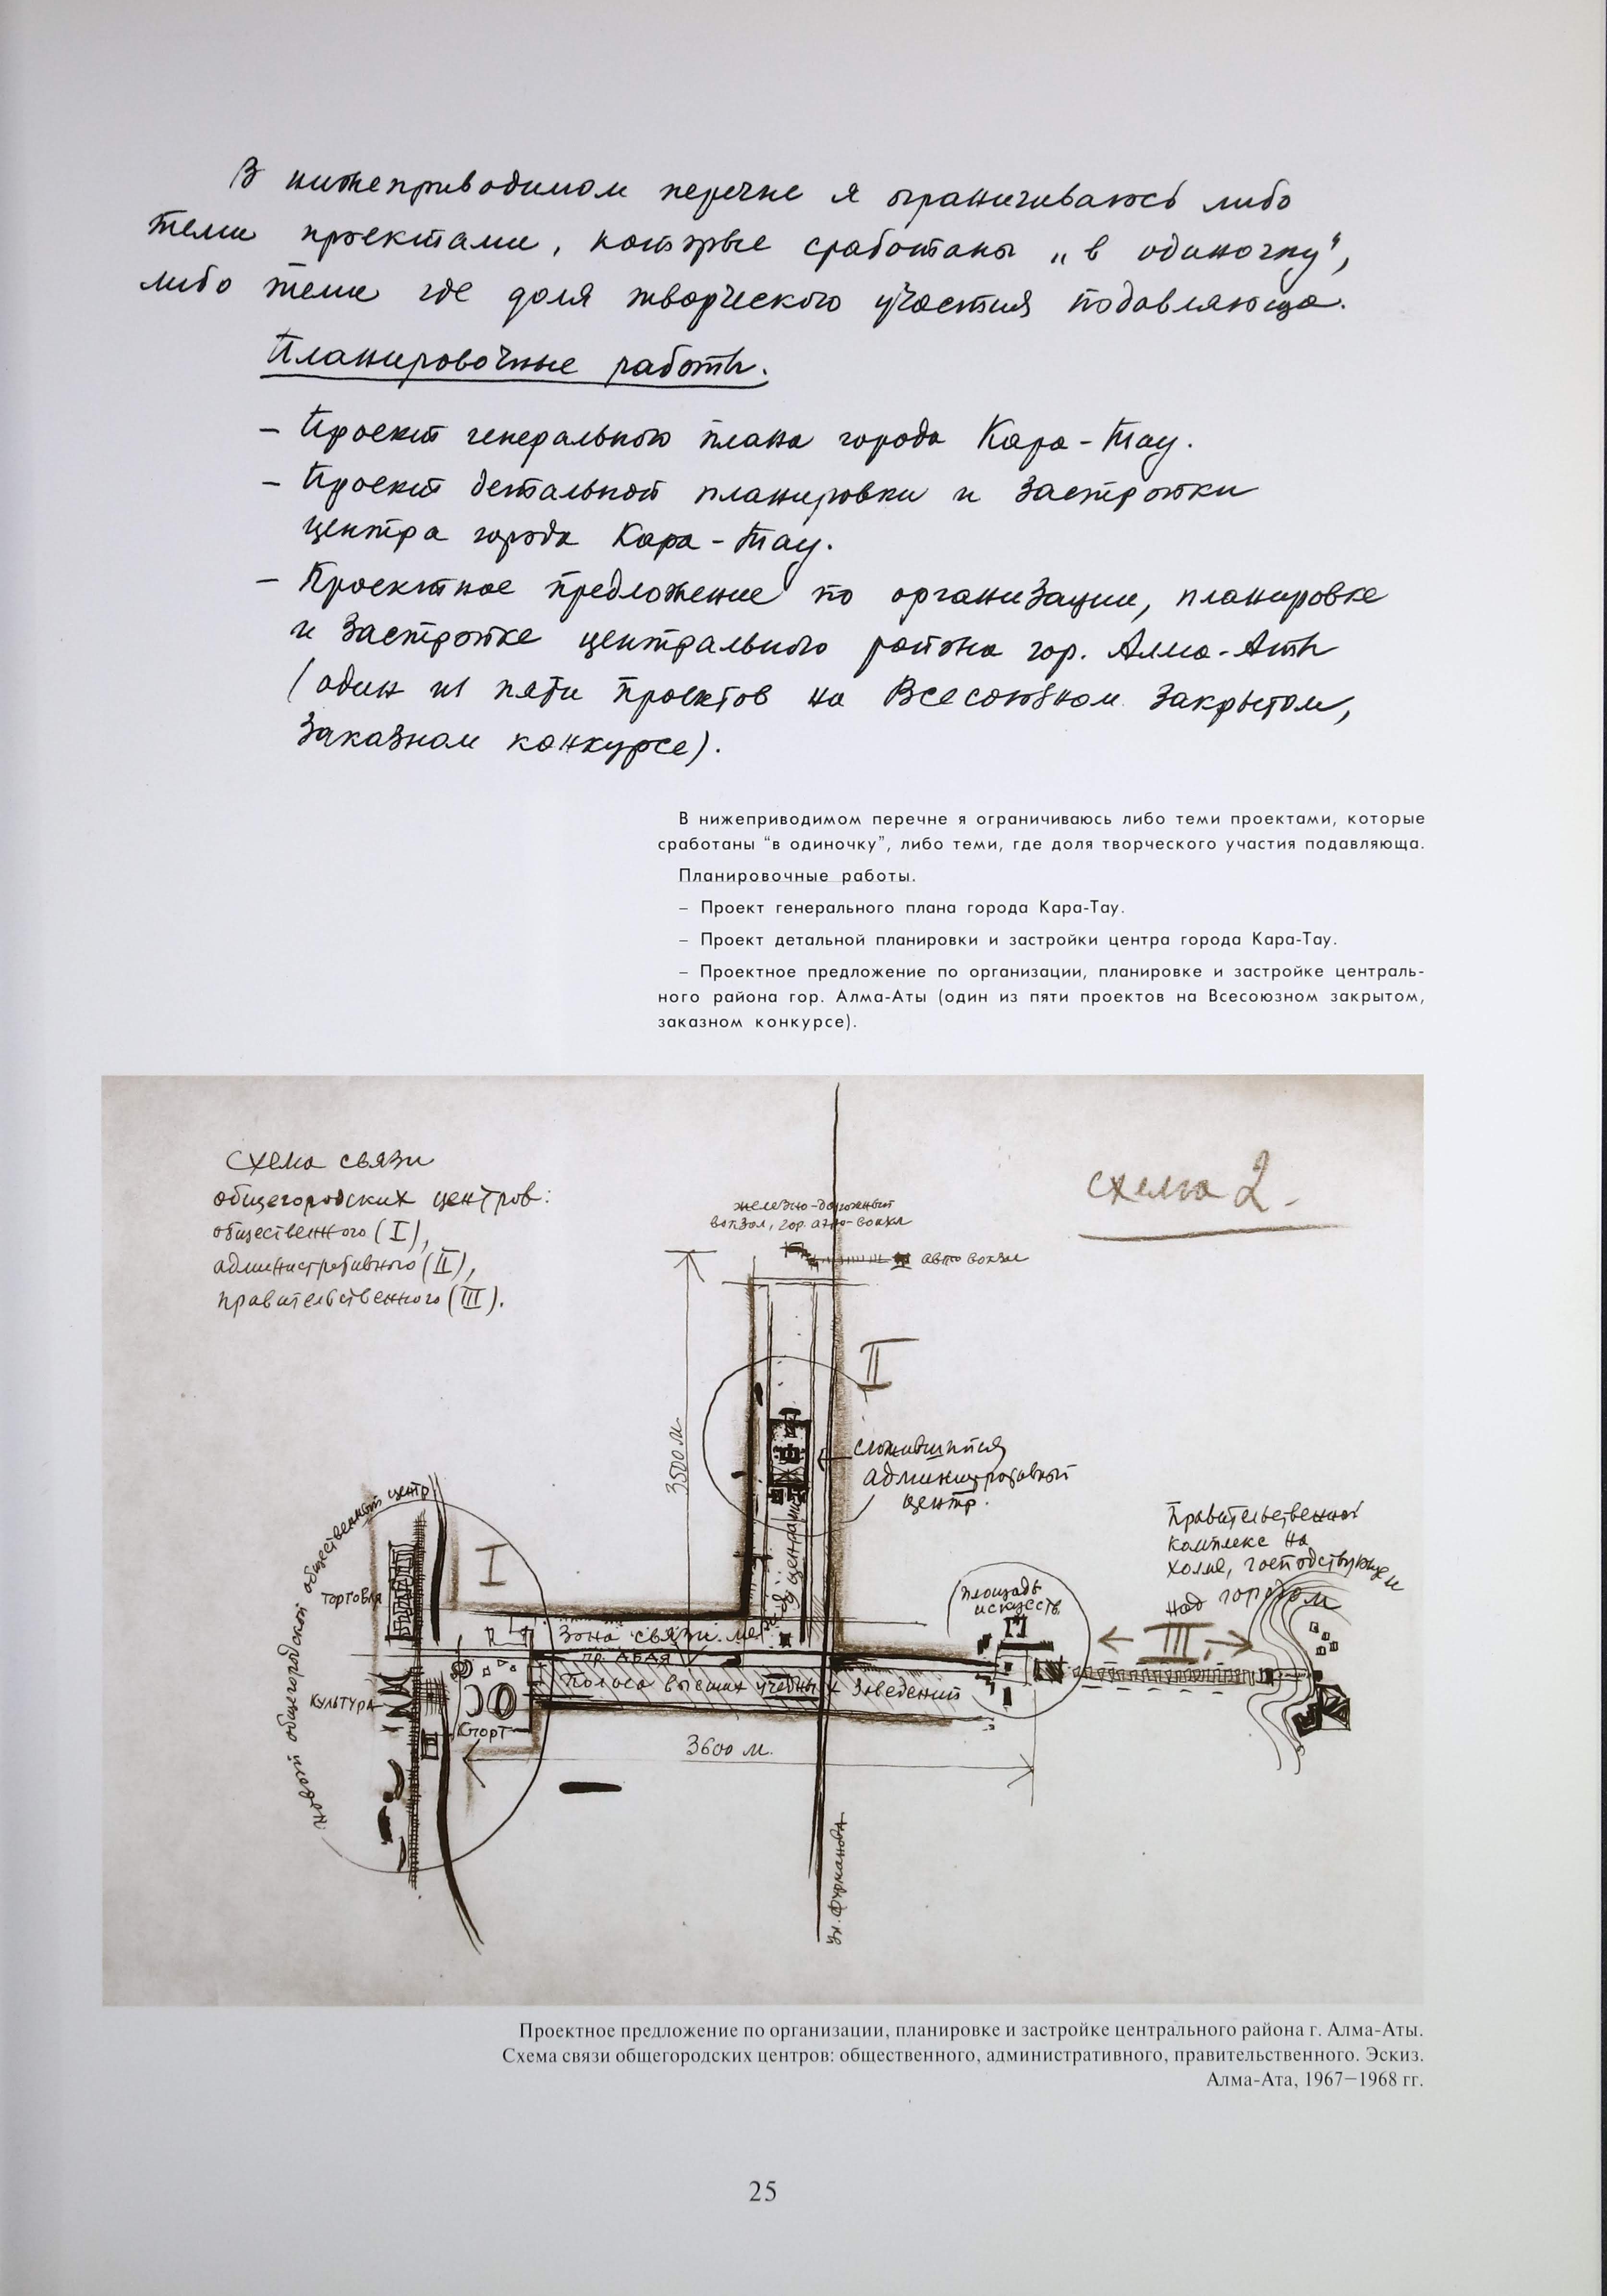 В нижеприводимом перечне я ограничиваюсь либо
теми проектами, которые сработаны „в одиночку",
либо теми где доля творческого участия подавляюща.
Планировочные работы.
– Проект генерального плана города Кара-Тау.
– Проект детальной планировки и застройки
центра города Кара-Тау.
– Проектное предложение по организации, планировке
и застройке центрального района гор. Алма-Аты
(один из пяти проектов на Всесоюзном закрытом,
заказном конкурсе).
В нижеприводимом перечне я ограничиваюсь либо теми проектами, которые
сработаны “в одиночку”, либо теми, где доля творческого участия подавляюща.
Планировочные работы.
– Проект генерального плана города Кара-Тау.
– Проект детальной планировки и застройки центра города Кара-Тау.
– Проектное предложение по организации, планировке и застройке централь-
ного района гор. Алма-Аты (один из пяти проектов на Всесоюзном закрытом,
заказном конкурсе).
Схема связи
общегородских центров:
общественного (I),
административного (II),
правительственного (III).
схема 2.
железно-дорожный
вокзал, гор. аэро-вокзал
автовокзал
II
3500 м.
сложившийся
административный
центр.
Правительственный
комплекс на
холме, господствующем
над городом
новый общегородской общественный центр
I
торговля
площадь
искусств
III
Зона связи между центрами
пр. АБАЯ
Полоса высших учебных заведений
культура
спорт
3600 м.
ул. Фурманова
Проектное предложение по организации, планировке и застройке центрального района г. Алма-Аты.
Схема связи общегородских центров: общественного, административного, правительственного. Эскиз.
Алма-Ата, 1967–1968 гг.
25